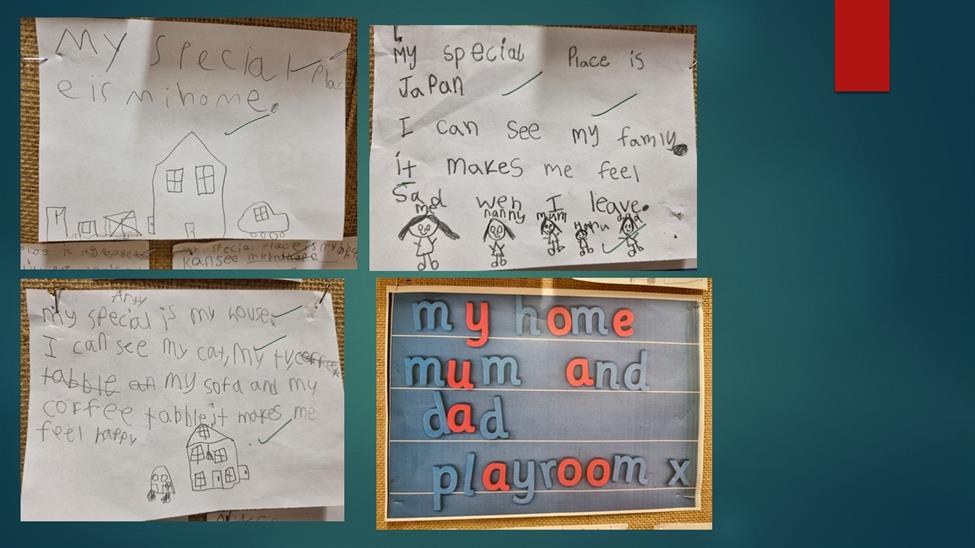 My special Plac
e is mi home.
My special Place is
JaPan
I can see my famly.
it makes me feel
Sad wen I leave.
me
nanny
mum
dad
my special place is my
kansee
Arty
my special is my house.
I can see my cat, my tv,
tabble an my sofa and my
corfee tabble it makes me
feel happy
my home
mum and
dad
playroom x